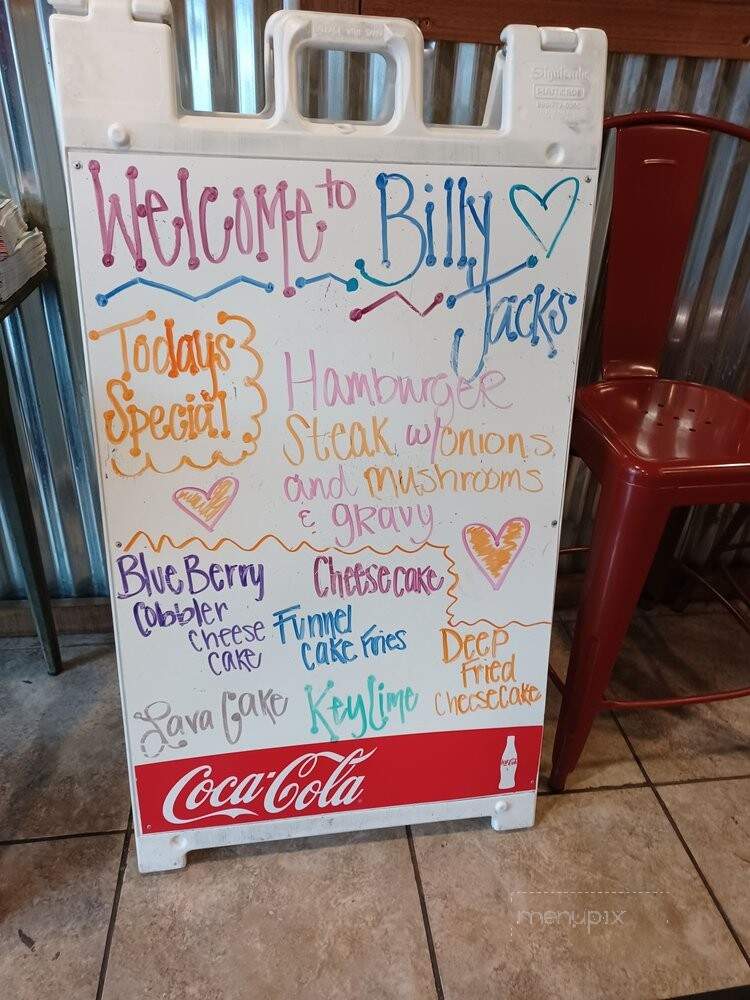 Welcome to Billy
Jacks
Todays
Special
Hamburger
Steak w/onions
and mushrooms
& gravy
BlueBerry
Cobbler
cheese
cake
Cheesecake
Funnel
cake fries
Deep
Fried
cheesecake
Lava Cake
Key Lime
Coca-Cola
menupix